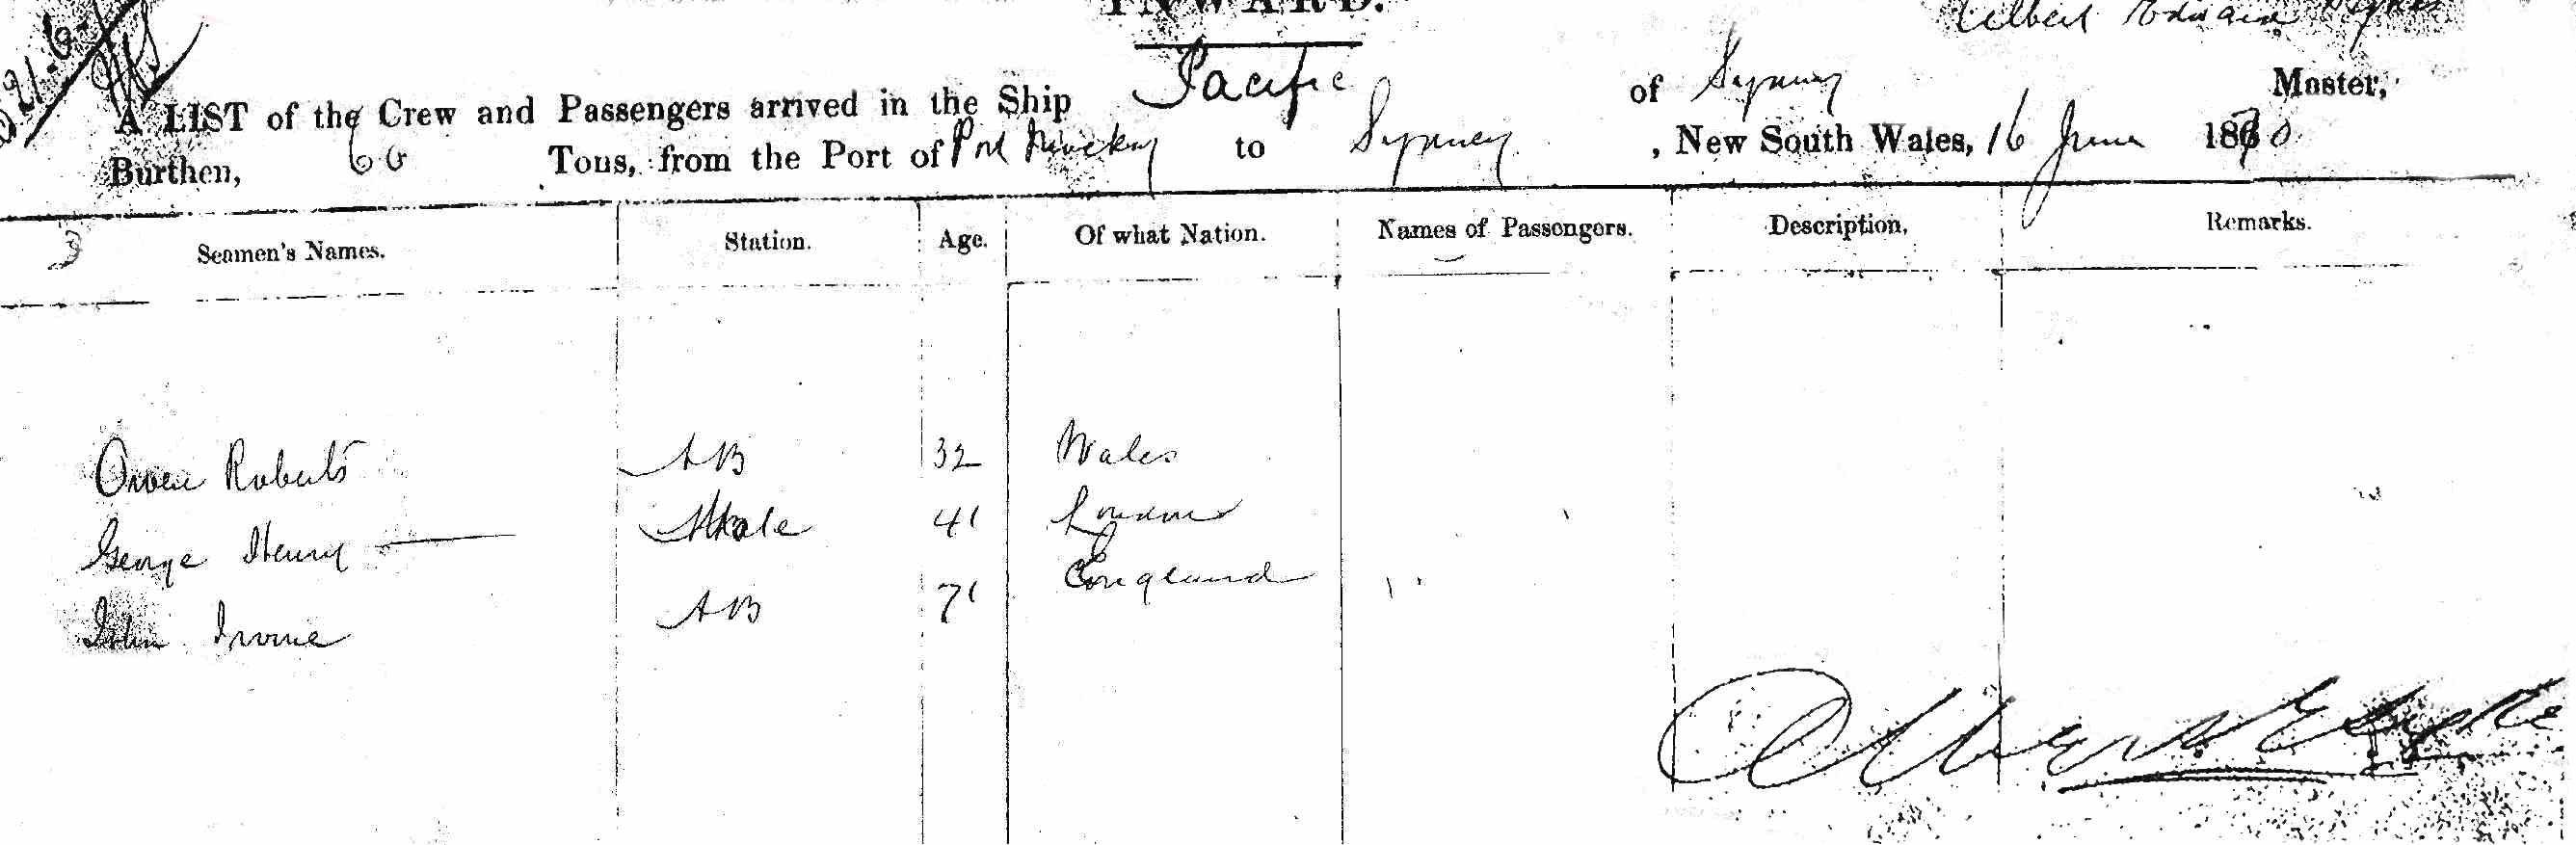 INWARD.
Albert Edward
A LIST of the Crew and Passengers arrived in the Ship Pacific of Sydney Master,
Burthen, 60 Tons, from the Port of Port Mackay to Sydney, New South Wales, 16 June 1870
Seamen's Names. Station. Age. Of what Nation. Names of Passengers. Description. Remarks.
Owen Roberts AB 32 Wales
George Henry — Mate 41 London
John Irvine AB 71 England